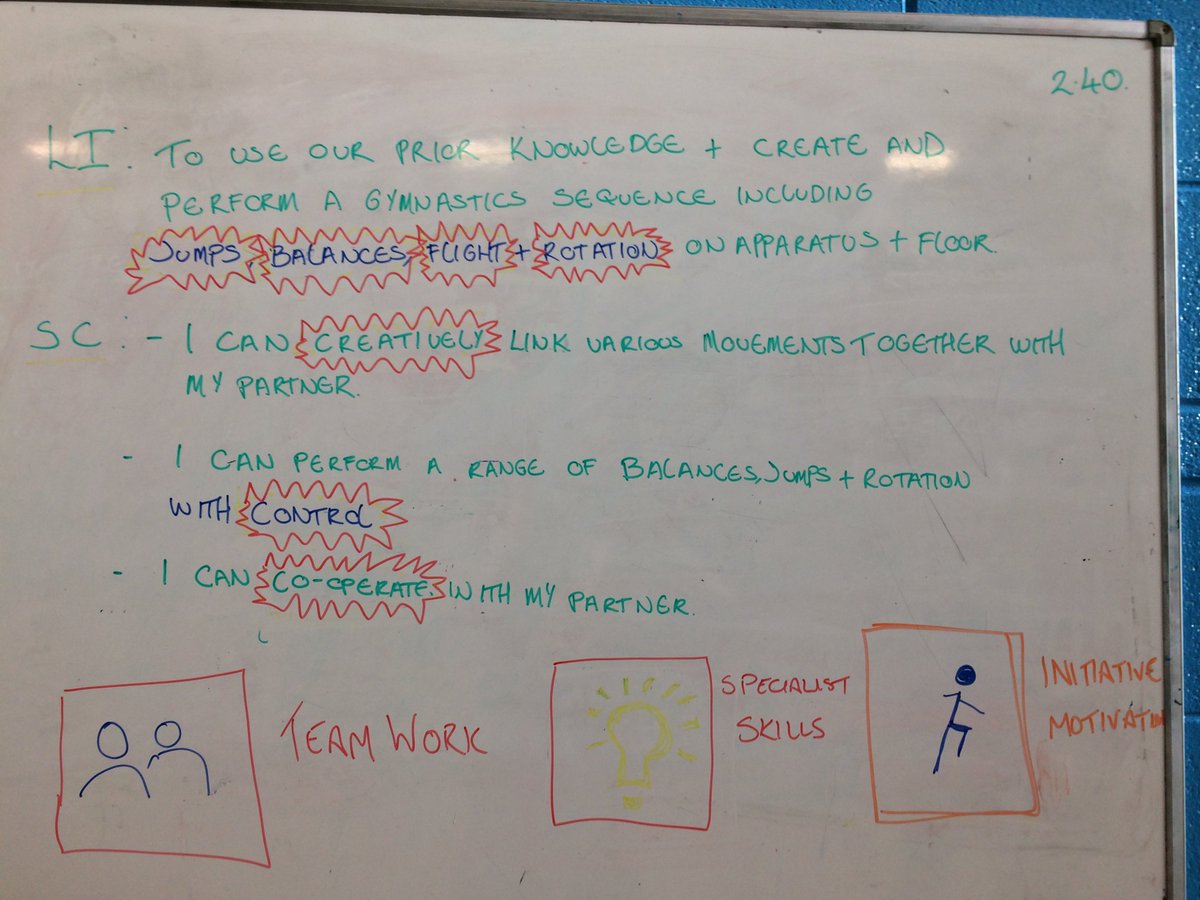 2.40.
LI: TO USE OUR PRIOR KNOWLEDGE + CREATE AND
PERFORM A GYMNASTICS SEQUENCE INCLUDING
JUMPS, BALANCES, FLIGHT + ROTATION ON APPARATUS + FLOOR.
SC: - I CAN CREATIVELY LINK VARIOUS MOVEMENTS TOGETHER WITH
MY PARTNER.
- I CAN PERFORM A RANGE OF BALANCES, JUMPS + ROTATION
WITH CONTROL
- I CAN CO-OPERATE. WITH MY PARTNER.
TEAM WORK
SPECIALIST
SKILLS
INITIATIVE
MOTIVATION